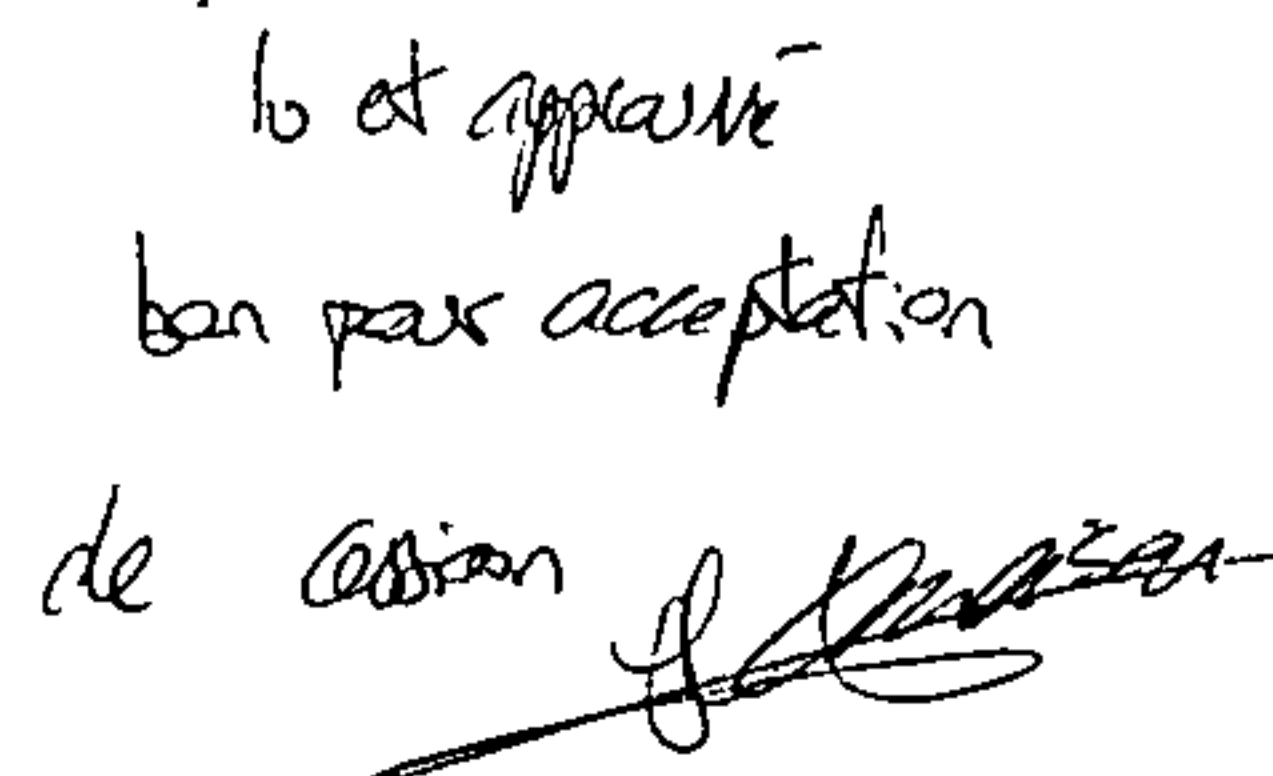 lu et approuvé
bon pour acceptation
de cession